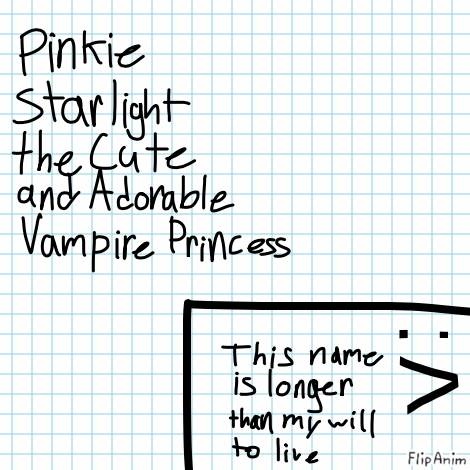 Pinkie
Starlight
the Cute
and Adorable
Vampire Princess
This name
is longer
than my will
to live
FlipAnim